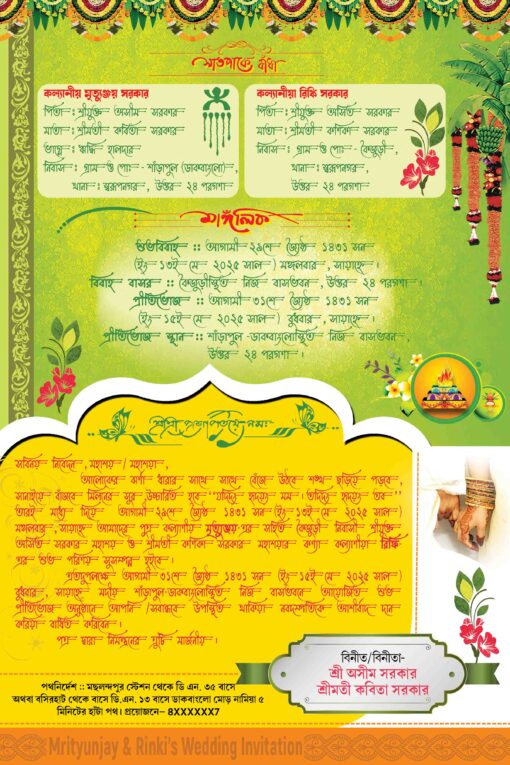 সাতপাকে বাঁধা
কল্যানীয় মৃত্যুঞ্জয় সরকার
পিতা : শ্রীযুক্ত অসীম সরকার
মাতা : শ্রীমতী কবিতা সরকার
নিবাস : গ্রাম ও পোঃ - শাঁড়াপুল (ডাকবাংলো),
থানা : স্বরূপনগর, উত্তর ২৪ পরগণা
কল্যানীয়া রিঙ্কি সরকার
পিতা : শ্রীযুক্ত অসিত সরকার
মাতা : শ্রীমতী কণিকা সরকার
নিবাস : গ্রাম ও পোঃ - কৈজুড়ী,
থানা : স্বরূপনগর,
উত্তর ২৪ পরগণা
মাঙ্গলিক
শুভবিবাহ :: আগামী ২৯শে জ্যৈষ্ঠ ১৪৩১ সন
(ইং ১৩ই মে ২০২৫ সাল) মঙ্গলবার, সায়াহ্নে।
বিবাহ বাসর :: কৈজুড়ীস্থিত নিজ বাসভবন, উত্তর ২৪ পরগণা।
প্রীতিভোজ :: আগামী ৩১শে জ্যৈষ্ঠ ১৪৩১ সন
(ইং ১৫ই মে ২০২৫ সাল) বুধবার, সায়াহ্নে।
প্রীতিভোজ স্থান :: শাঁড়াপুল ডাকবাংলোস্থিত নিজ বাসভবন,
উত্তর ২৪ পরগণা।
শ্রীশ্রী প্রজাপতয়ে নমঃ
সবিনয় নিবেদন, মহাশয়/মহাশয়া,
আলোকের ঝর্ণা ধারার সাথে সাথে বেঁজে উঠবে শঙ্খ ছড়িয়ে পড়বে,
সানাইয়ে বাঁজবে মিলনের সুর উচ্চারিত হবে "যদিদং হৃদয়ং মম। তদিদং হৃদয়ং তব"
তারই মধ্যে দিয়ে আগামী ২৯শে জ্যৈষ্ঠ ১৪৩১ সন (ইং ১৩ই মে ২০২৫ সাল)
মঙ্গলবার, সায়াহ্নে আমাদের পুত্র কল্যাণীয় মৃত্যুঞ্জয় এর সহিত কৈজুড়ী নিবাসী শ্রীযুক্ত
অসিত সরকার মহাশয় ও শ্রীমতী কণিকা সরকার মহাশয়ার কন্যা কল্যাণীয়া রিঙ্কি
এর শুভ পরিণয় সুসম্পন্ন হইবে।
এতদুপলক্ষে আগামী ৩১শে জ্যৈষ্ঠ ১৪৩১ সন (ইং ১৫ই মে ২০২৫ সাল)
বুধবার, সায়াহ্নে মদীয় শাঁড়াপুল ডাকবাংলোস্থিত নিজ বাসভবনে আয়োজিত শুভ
প্রীতিভোজ অনুষ্ঠানে আপনি/সবান্ধবে উপস্থিত থাকিয়া নবদম্পতিকে আশীর্বাদ দান
করিয়া বাধিত করিবেন।
পত্র দ্বারা নিমন্ত্রনের ত্রুটি মার্জনীয়।
বিনীত/বিনীতা-
শ্রী অসীম সরকার
শ্রীমতী কবিতা সরকার
পথনির্দেশ :: মছলন্দপুর স্টেশন থেকে ডি.এন. ৩৫ বাসে
অথবা বসিরহাট থেকে বাসে ডি.এন. ১৩ বাসে ডাকবাংলো মোড় নামিয়া ৫
মিনিটের হাঁটা পথ। প্রয়োজনে- 8XXXXXX7
Mrityunjay & Rinki's Wedding Invitation